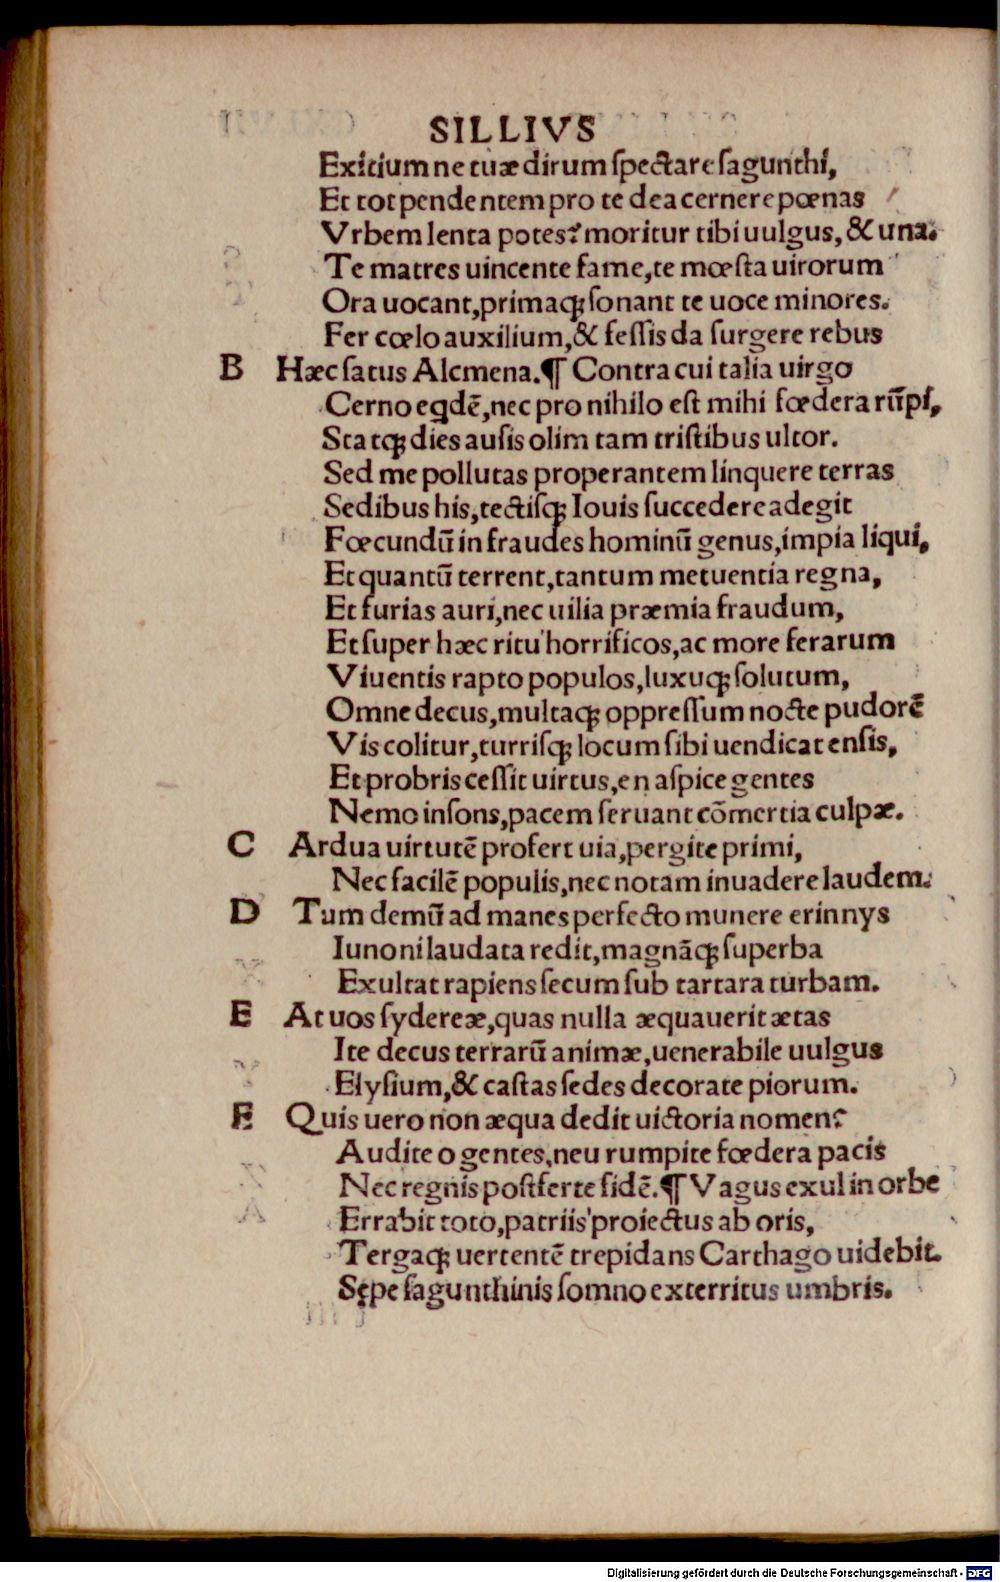 SILLIVS
Exitium ne tuæ dirum spectare sagunthi,
Et tot pendentem pro te dea cernere pœnas
Vrbem lenta potes? moritur tibi uulgus, & una.
Te matres uincente fame, te mœsta uirorum
Ora uocant, primaqꝫ sonant te uoce minores.
Fer cœlo auxilium, & fessis da surgere rebus
B Hæc satus Alcmena. ¶ Contra cui talia uirgo
Cerno eqdē, nec pro nihilo est mihi fœdera rūpi,
Sta tqꝫ dies ausis olim tam tristibus ultor.
Sed me pollutas properantem linquere terras
Sedibus his, tectisqꝫ Iouis succedere adegit
Fœcundū in fraudes hominū genus, impia liqui,
Et quantū terrent, tantum metuentia regna,
Et furias auri, nec uilia præmia fraudum,
Et super hæc ritu horrificos, ac more ferarum
Viuentis rapto populos, luxuqꝫ solutum,
Omne decus, multaqꝫ oppressum nocte pudorē
Vis colitur, turrisqꝫ locum sibi uendicat ensis,
Et probris cessit uirtus, en aspice gentes
Nemo insons, pacem seruant cōmertia culpæ.
C Ardua uirtutē profert uia, pergite primi,
Nec facilē populis, nec notam inuadere laudem.
D Tum demū ad manes perfecto munere erinnys
Iunoni laudata redit, magnāqꝫ superba
Exultat rapiens secum sub tartara turbam.
E At uos sydereæ, quas nulla æquauerit ætas
Ite decus terrarū animæ, uenerabile uulgus
Elysium, & castas sedes decorate piorum.
E Quis uero non æqua dedit uictoria nomen?
Audite o gentes, neu rumpite fœdera pacis
Nec regnis postferte fidē. ¶ Vagus exul in orbe
Errabit toto, patriis proiectus ab oris,
Tergaqꝫ uertentē trepidans Carthago uidebit.
Sępe sagunthinis somno exterritus umbris.
Digitalisierung gefördert durch die Deutsche Forschungsgemeinschaft - DFG